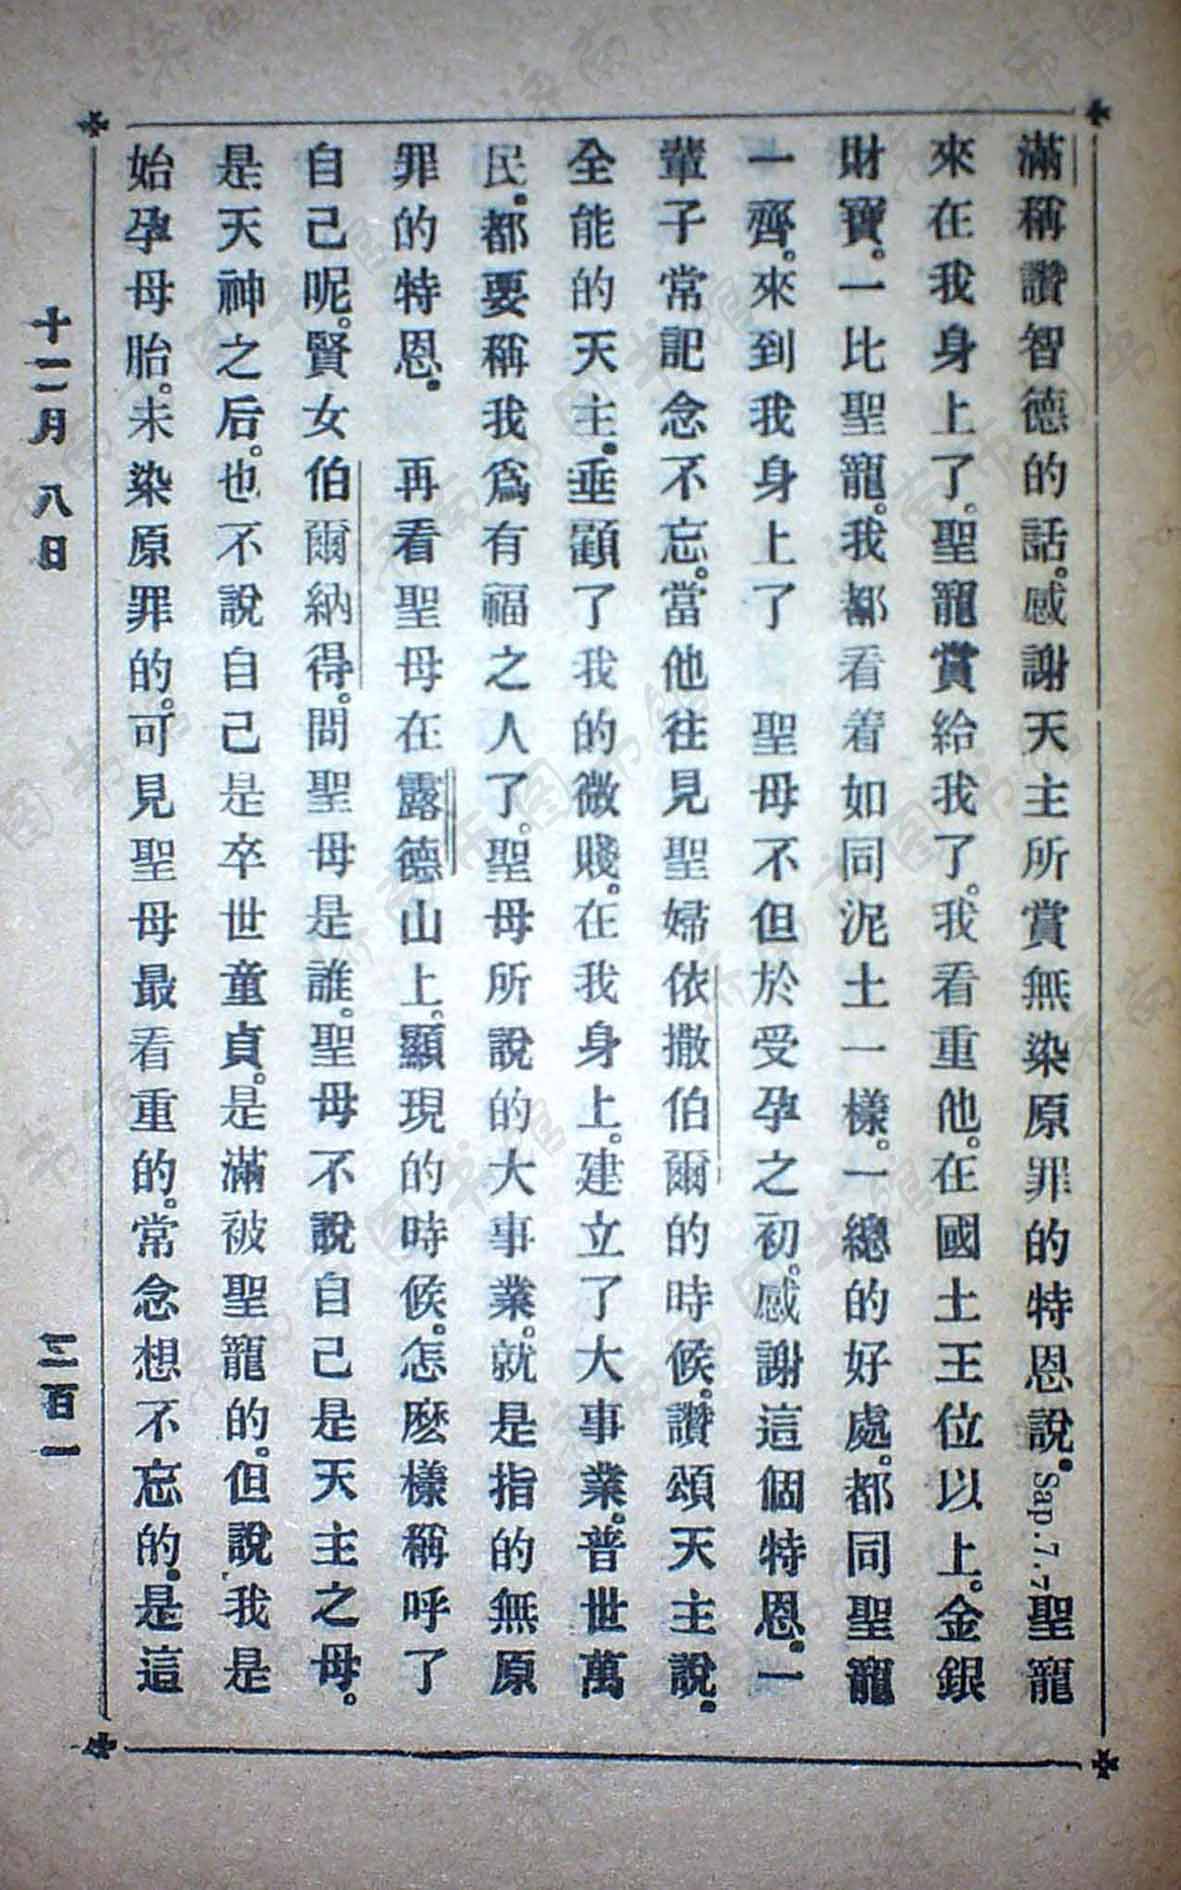 滿稱讚智德的話。感謝天主所賞無染原罪的特恩說。Sap.7.7聖寵
來在我身上了。聖寵賞給我了。我看重他。在國土王位以上。金銀
財寶。一比聖寵。我都看着如同泥土一樣。一總的好處。都同聖寵
一齊。來到我身上了　聖母不但於受孕之初。感謝這個特恩。一
輩子常記念不忘。當他往見聖婦依撒伯爾的時候。讚頌天主說。
全能的天主。垂顧了我的微賤。在我身上。建立了大事業。普世萬
民。都要稱我爲有福之人了。聖母所說的大事業。就是指的無原
罪的特恩。　再看聖母在露德山上。顯現的時候。怎麽樣稱呼了
自己呢。賢女伯爾納得。問聖母是誰。聖母不說自己是天主之母。
是天神之后。也不說自己是卒世童貞。是滿被聖寵的。但說我是
始孕母胎。未染原罪的。可見聖母最看重的。常念想不忘的。是這
十二月 八日
二百一